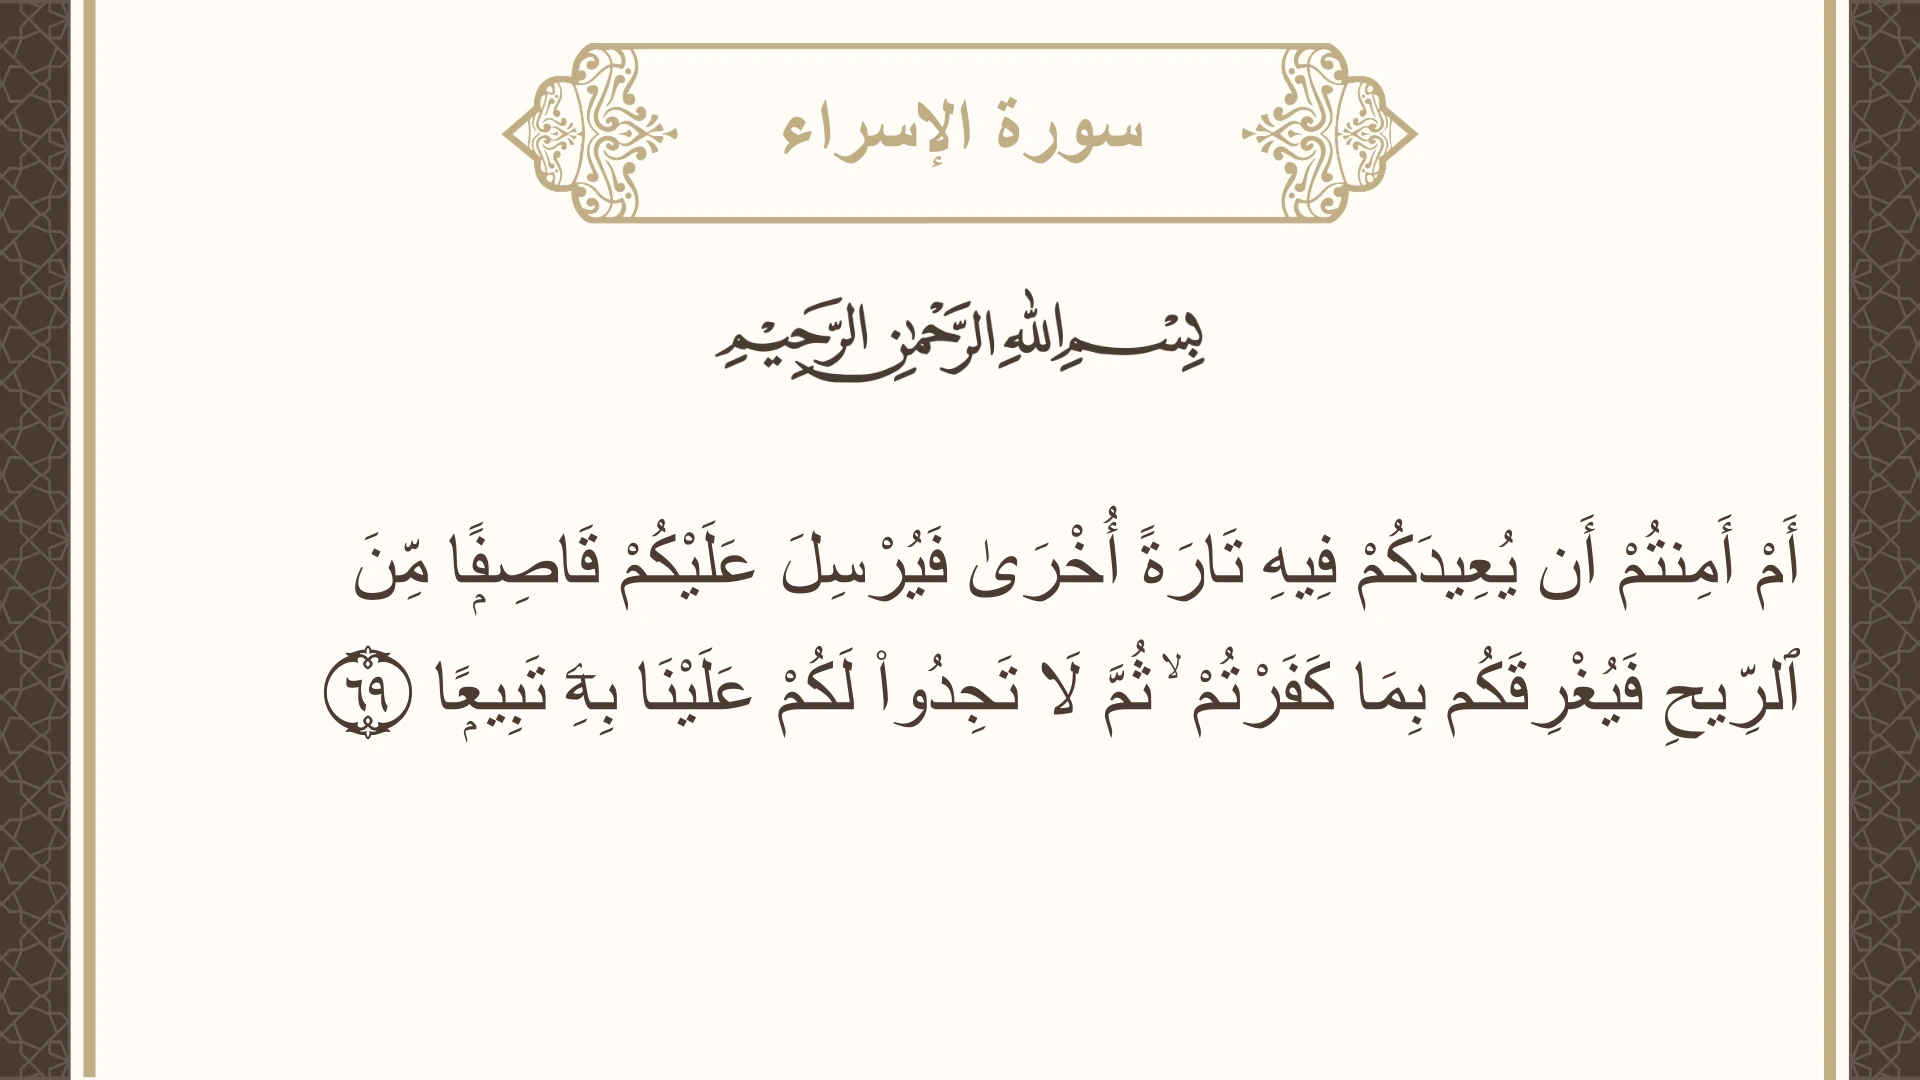 سورة الإسراء
بِسْمِ اللهِ الرَّحْمٰنِ الرَّحِيْمِ
أَمْ أَمِنتُمْ أَن يُعِيدَكُمْ فِيهِ تَارَةً أُخْرَىٰ فَيُرْسِلَ عَلَيْكُمْ قَاصِفًۭا مِّنَ
ٱلرِّيحِ فَيُغْرِقَكُم بِمَا كَفَرْتُمْ ۙ ثُمَّ لَا تَجِدُوا۟ لَكُمْ عَلَيْنَا بِهِۦ تَبِيعًۭا ٦٩